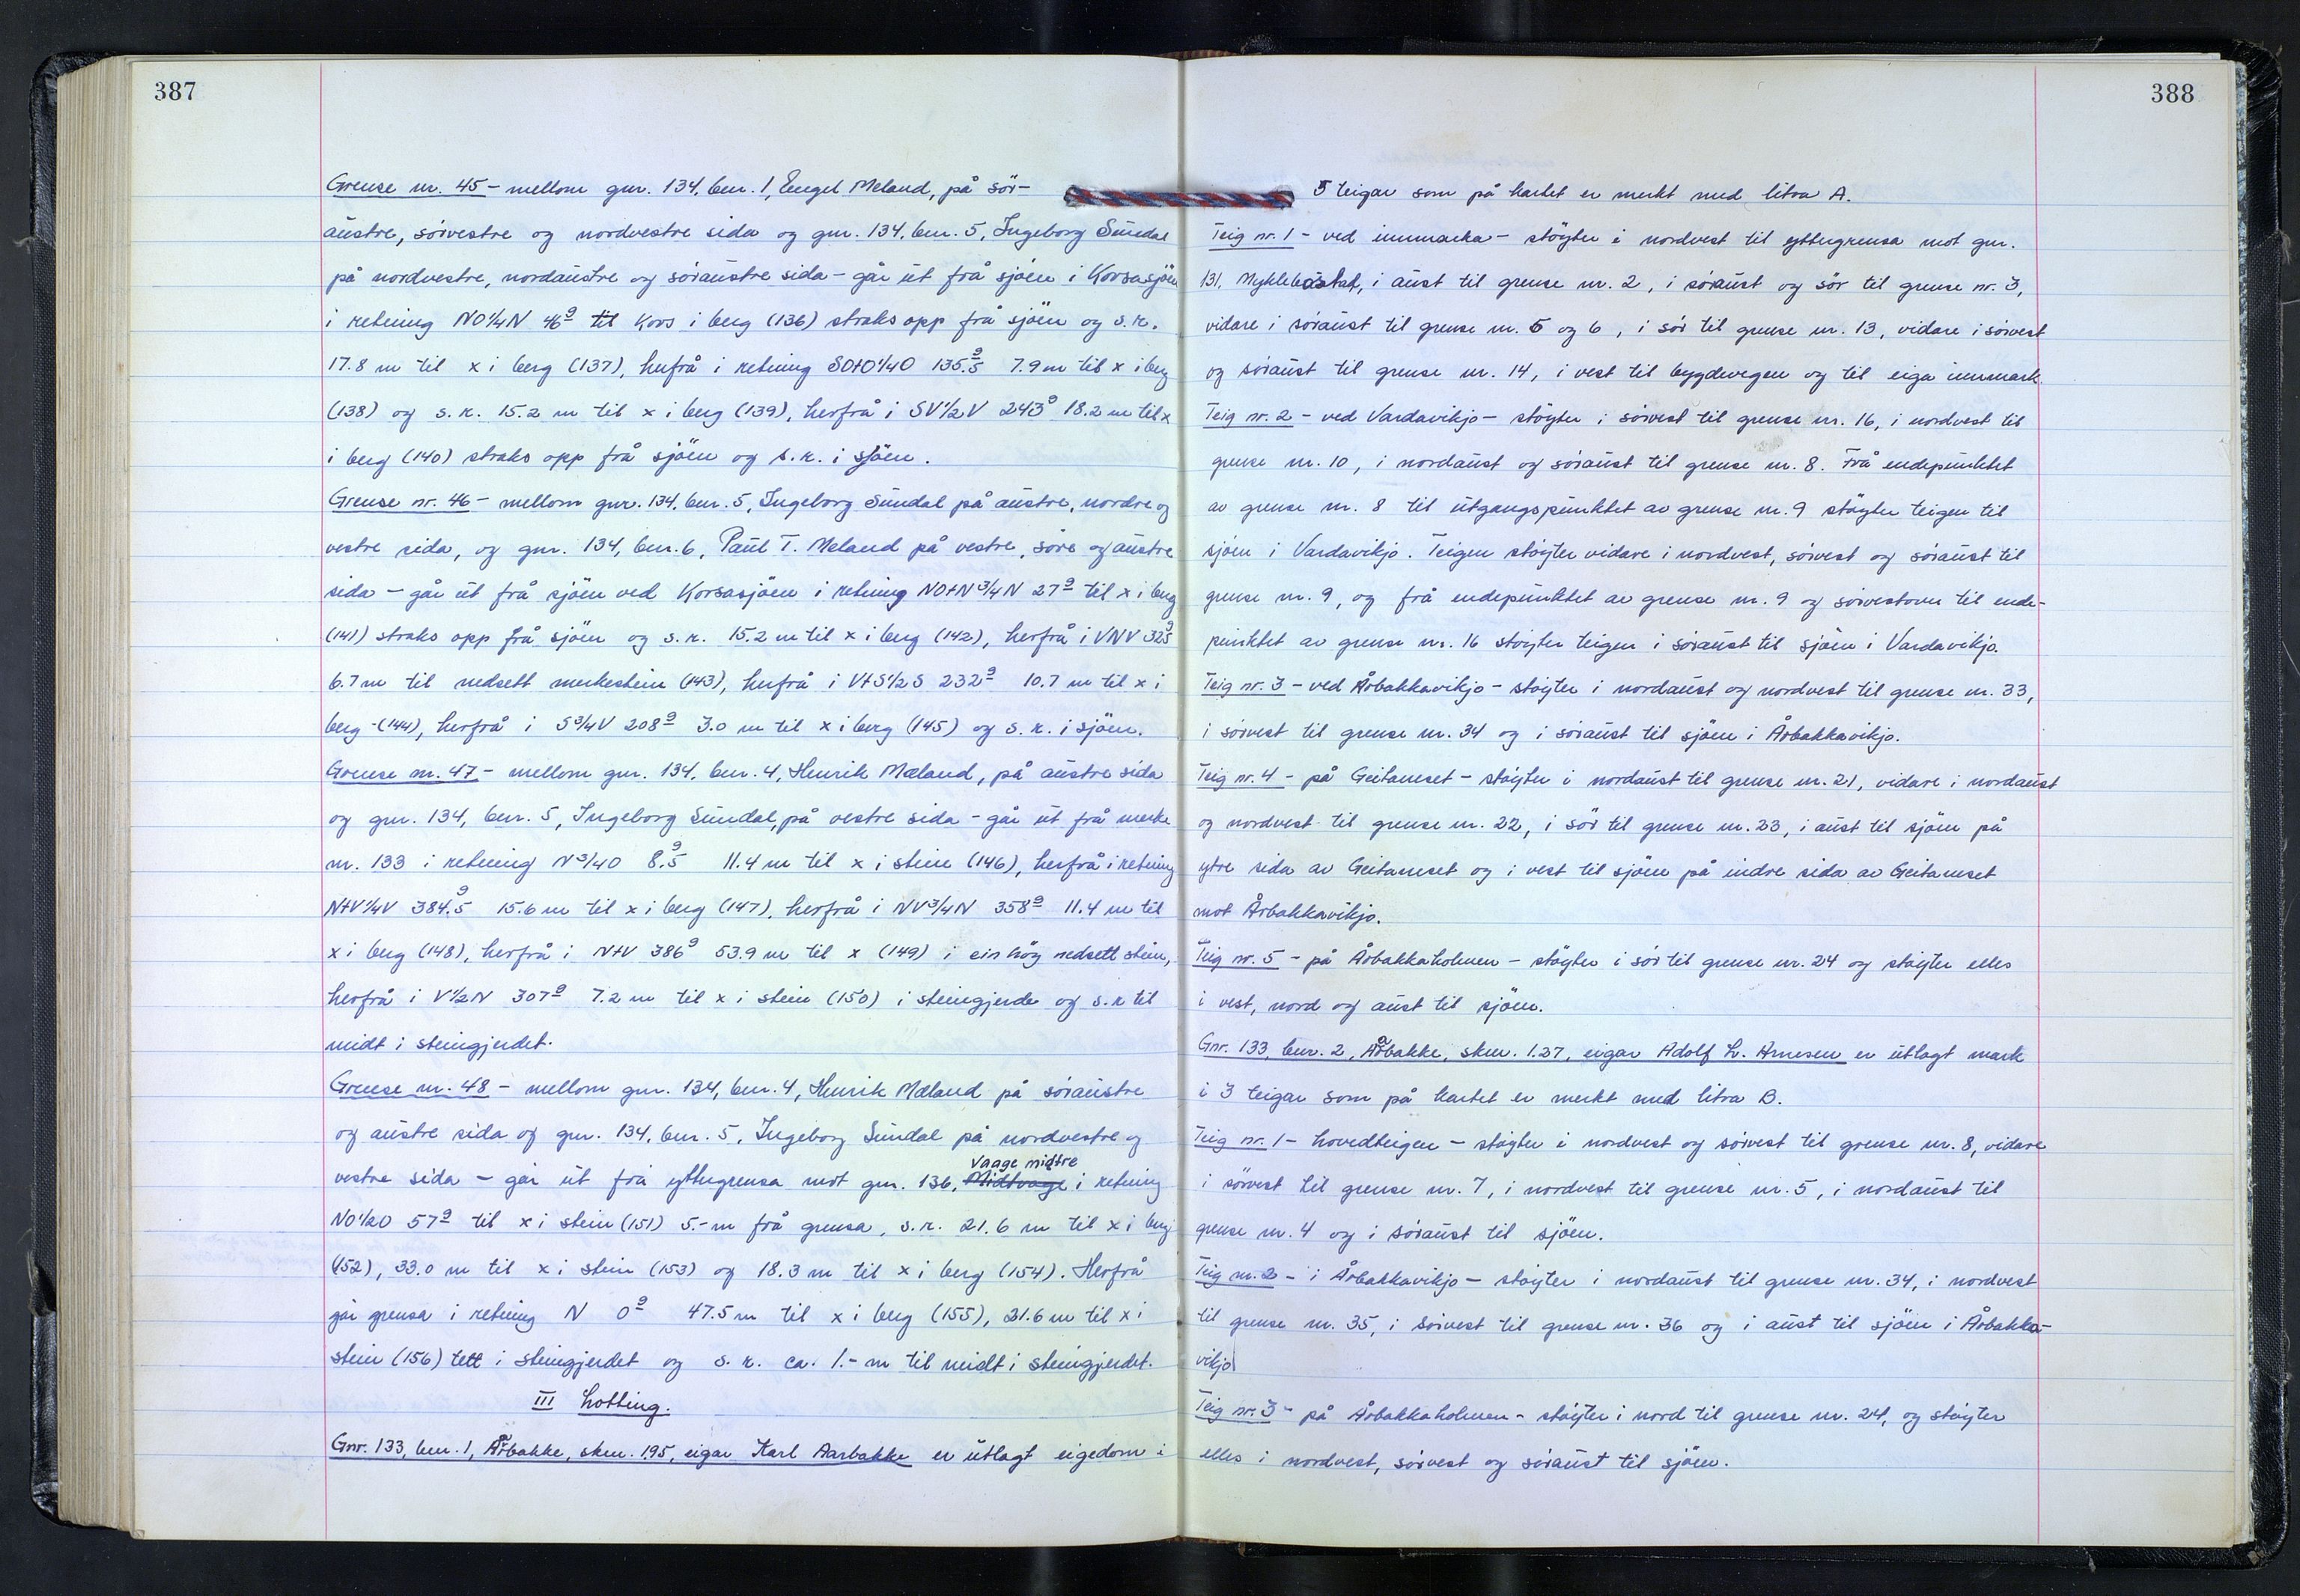 387
Grense nr. 45 - mellom gnr. 134, bnr. 1, Engel Meland, på sör-
austre, sörvestre og nordvestre sida og gnr. 134, bnr. 5, Ingeborg Sundal
på nordvestre, nordaustre og söraustre sida - går ut frå sjöen i Korsasjöen
i retning NO¼N 46g til kors i berg (136) straks opp frå sjöen og s.r.
17.8 m til x i berg (137), herfrå i retning SO+O¼O 135.5g 7.9 m til x i berg
(138) og s.r. 15.2 m til x i berg (139), herfrå i SV½V 243g 18.2 m til x
i berg (140) straks opp frå sjöen og s.r. i sjöen.
Grense nr. 46 - mellom gnr. 134, bnr. 5, Ingeborg Sundal på austre, nordre og
vestre sida, og gnr. 134, bnr. 6, Paul T. Meland på vestre, sore og austre
sida - går ut frå sjöen ved Korsasjöen i retning NO+N¾N 27g til x i berg
(141) straks opp frå sjöen og s.r. 15.2 m til x i berg (142), herfrå i VNV 325g
6.7 m til nedsett merkestein (143), herfrå i V+S½S 232g 10.7 m til x i
berg (144), herfrå i S¾V 208g 3.0 m til x i berg (145) og s.r. i sjöen.
Grense nr. 47 - mellom gnr. 134, bnr. 4, Henrik Mæland, på austre sida
og gnr. 134, bnr. 5, Ingeborg Sundal, på vestre sida - går ut frå merke
nr. 133 i retning N¾O 8.5g 11.4 m til x i stein (146), herfrå i retning
N+V¼V 384.5g 15.6 m til x i berg (147), herfrå i NV¾N 358g 11.4 m til
x i berg (148), herfrå i N+V 386g 53.9 m til x (149) i ein hög nedsett stein,
herfrå i V½N 307g 7.2 m til x i stein (150) i steingjerde og s.r til
midt i steingjerdet.
Grense nr. 48 - mellom gnr. 134, bnr. 4, Henrik Mæland på söraustre
og austre sida og gnr. 134, bnr. 5, Ingeborg Sundal på nordvestre og
vestre sida - går ut frå yttergrensa mot gnr. 136, Midtvage Vaage midtre i retning
NO½O 57g til x i stein (151) 5.- m frå grensa, s.r. 21.6 m til x i berg
(152), 33.0 m til x i stein (153) og 18.3 m til x i berg (154). Herfrå
går grensa i retning N 0g 47.5 m til x i berg (155), 21.6 m til x i
stein (156) tett i steingjerdet og s.r. ca. 1.- m til midt i steingjerdet.
III Lotting.
Gnr. 133, bnr. 1, Årbakke, skm. 1.95, eigar Karl Aarbakke er utlagt eigedom i
388
5 teigar som på kartet er merkt med litra A.
Teig nr. 1 - ved innmarka - stöyter i nordvest til yttergrensa mot gnr.
131, Mykleböstad, i aust til grense nr. 2, i söraust og sör til grense nr. 3,
vidare i söraust til grense nr. 5 og 6, i sör til grense nr. 13, vidare i sörvest
og söraust til grense nr. 14, i vest til bygdevegen og til eiga innmark.
Teig nr. 2 - ved Vardavikjo - stöyter i sörvest til grense nr. 16, i nordvest til
grense nr. 10, i nordaust og söraust til grense nr. 8. Frå endepunktet
av grense nr. 8 til utgangspunktet av grense nr. 9 stöyter teigen til
sjöen i Vardavikjo. Teigen stöyter vidare i nordvest, sörvest og söraust til
grense nr. 9, og frå endepunktet av grense nr. 9 og sörvestover til ende-
punktet av grense nr. 16 stöyter teigen i söraust til sjöen i Vardavikjo.
Teig nr. 3 - ved Årbakkavikjo - stöyter i nordaust og nordvest til grense nr. 33,
i sörvest til grense nr. 34 og i söraust til sjöen i Årbakkavikjo.
Teig nr. 4 - på Geitaneset - stöyter i nordaust til grense nr. 21, vidare i nordaust
og nordvest til grense nr. 22, i sör til grense nr. 23, i aust til sjöen på
ytre sida av Geitaneset og i vest til sjöen på indre sida av Geitaneset
mot Årbakkavikjo.
Teig nr. 5 - på Årbakkaholmen - stöyter i sör til grense nr. 24 og stöyter elles
i vest, nord og aust til sjöen.
Gnr. 133, bnr. 2, Årbakke, skm. 1.27, eigar Adolf L. Arnesen er utlagt mark
i 3 teigar som på kartet er merkt med litra B.
Teig nr. 1 - hovedteigen - stöyter i nordvest og sörvest til grense nr. 8, vidare
i sörvest til grense nr. 7, i nordvest til grense nr. 5, i nordaust til
grense nr. 4 og i söraust til sjöen.
Teig nr. 2 - i Årbakkavikjo - stöyter i nordaust til grense nr. 34, i nordvest
til grense nr. 35, i sörvest til grense nr. 36 og i aust til sjöen i Årbakka-
vikjo
Teig nr. 3 - på Årbakkaholmen - stöyter i nord til grense nr. 24, og stöyter
elles i nordvest, sörvest og söraust til sjöen.